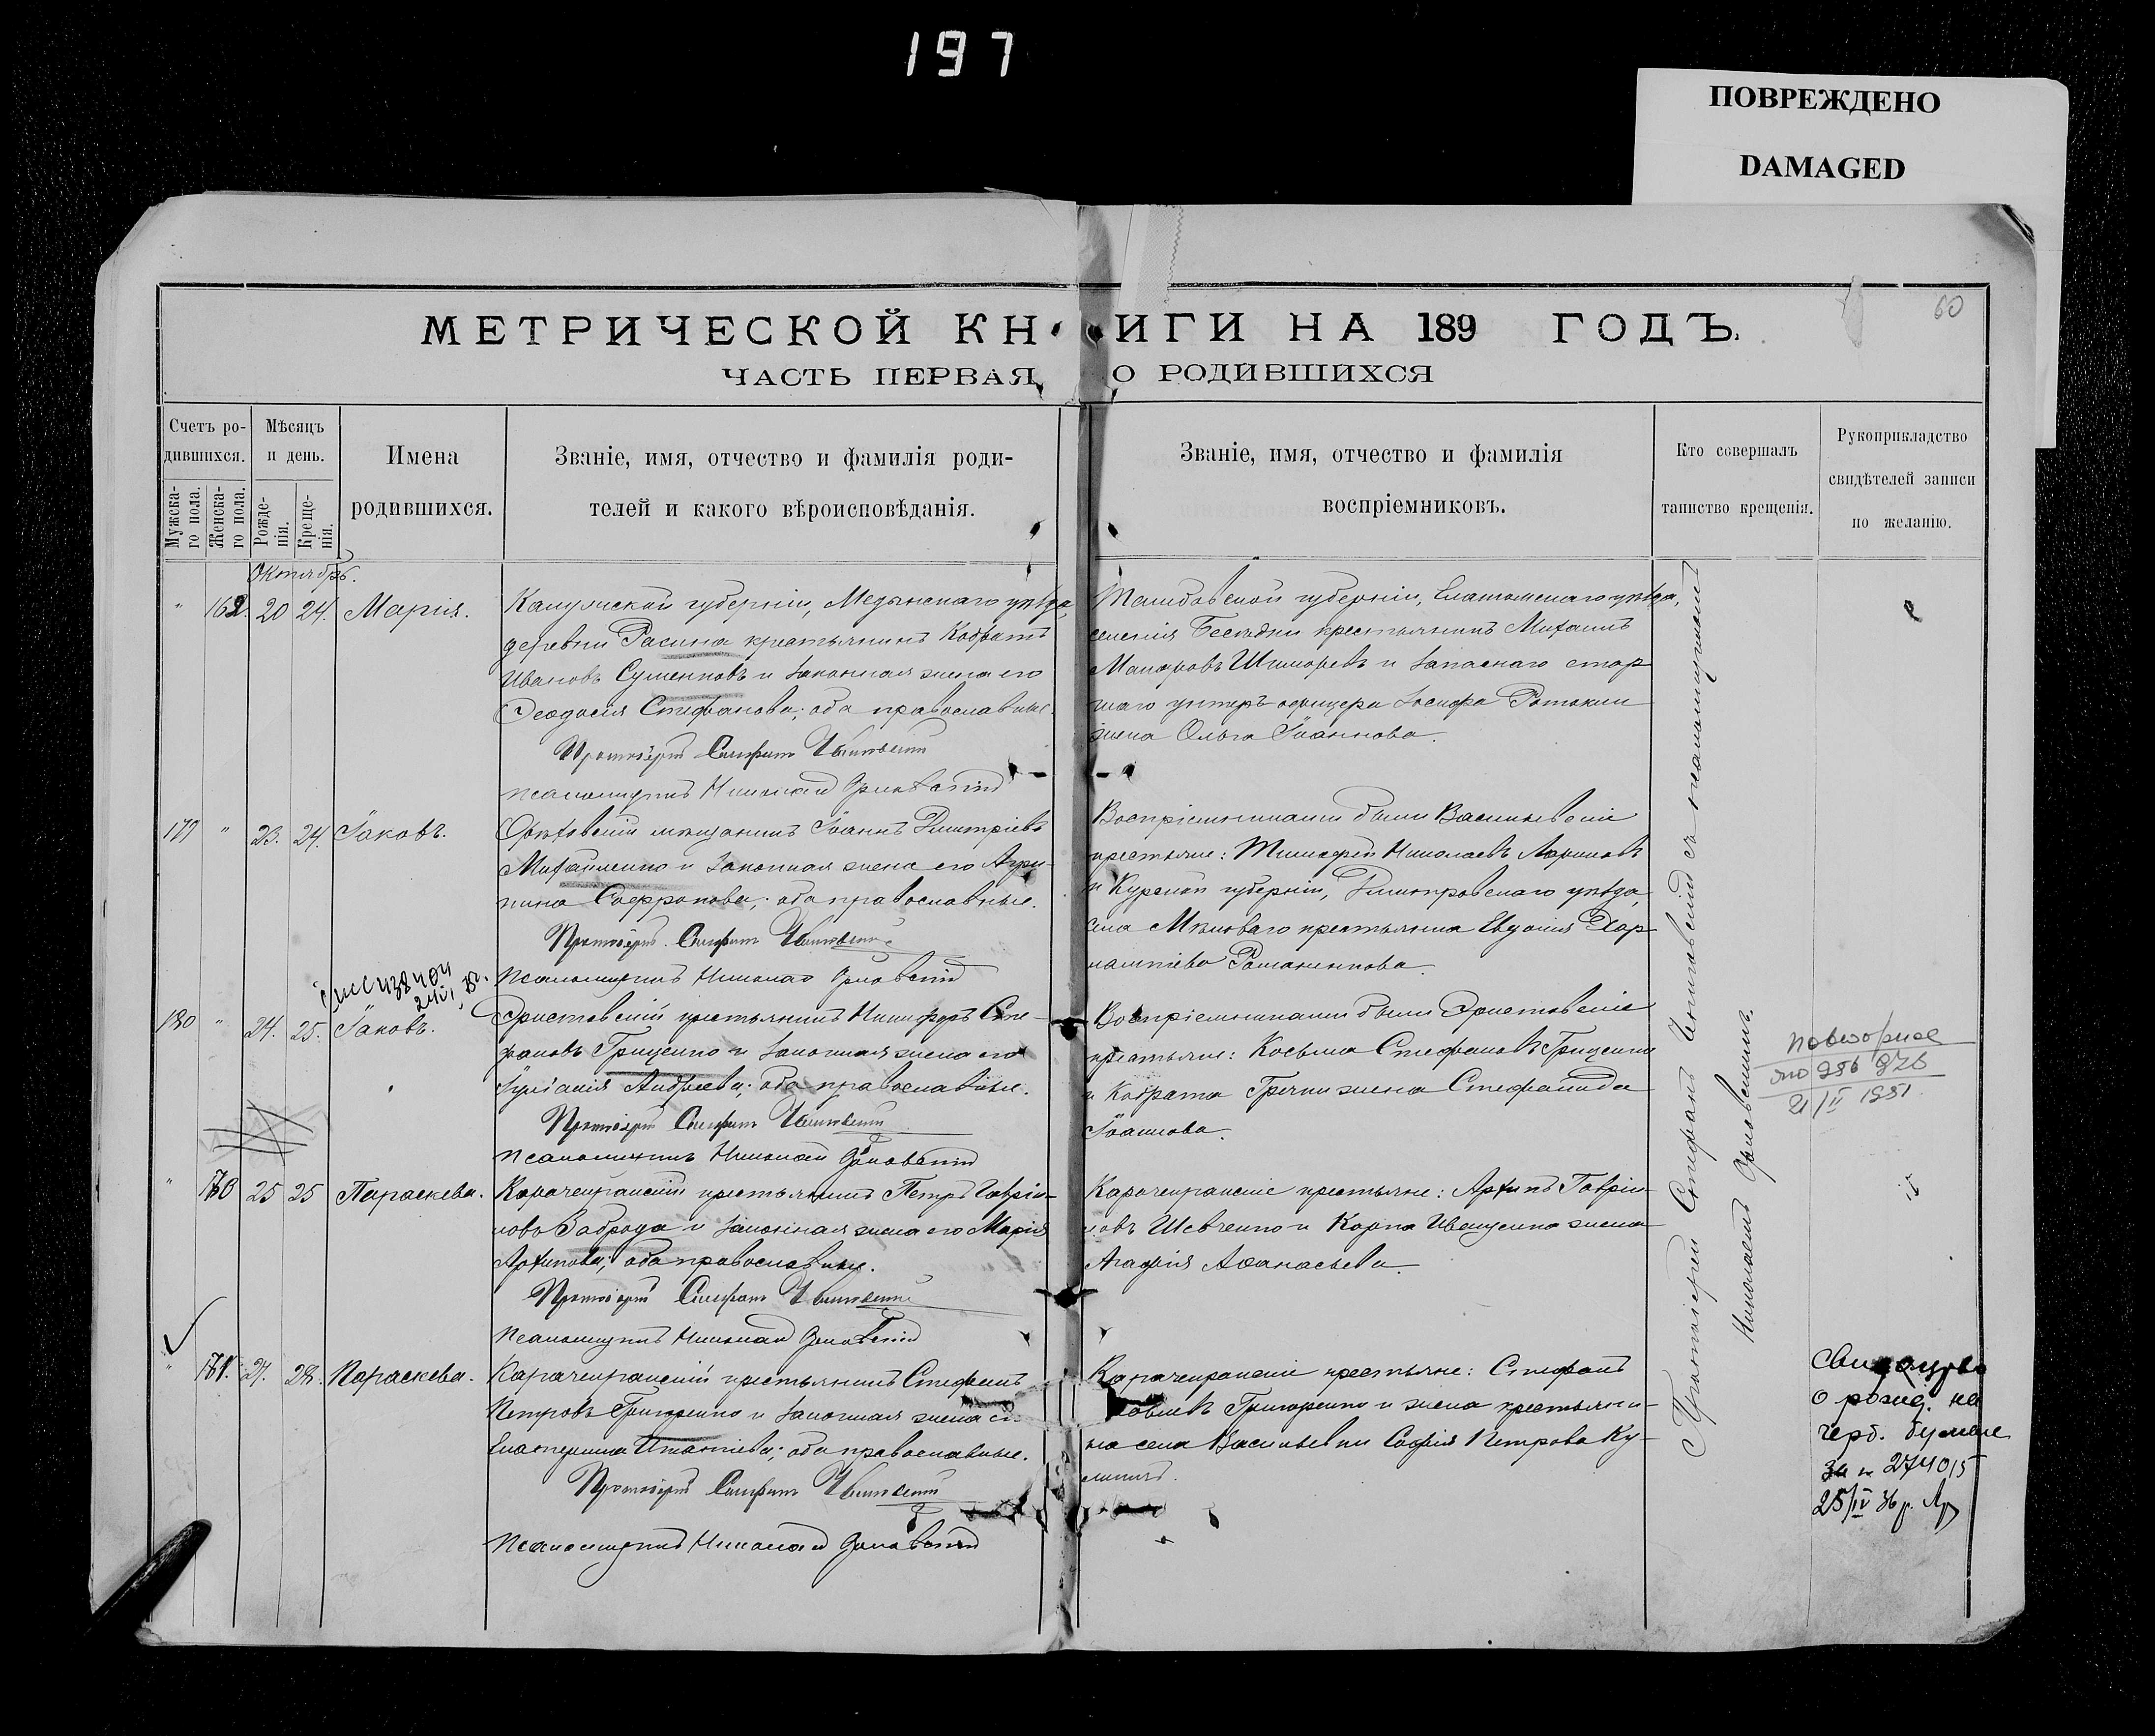 197
ПОВРЕЖДЕНО
DAMAGED
60
МЕТРИЧЕСКОЙ КНИГИ НА 189 ГОДЪ.
ЧАСТЬ ПЕРВАЯ, О РОДИВШИХСЯ
Счетъ ро-
дившихся.
Мужска-
го пола.
Женска-
го пола.
Мѣсяцъ
и день.
Рожде-
нія.
Креще-
нія.
Имена
родившихся.
Званіе, имя, отчество и фамилія роди-
телей и какого вѣроисповѣданія.
Званіе, имя, отчество и фамилія
воспріемниковъ.
Кто совершалъ
таинство крещенія.
Рукоприкладство
свидѣтелей записи
по желанію.
Октябрь.
" 162. 20 24. Марія.
Калужской губерніи, Медынскаго уѣзда,
деревни Расина крестьянинъ Кодратъ
Ивановъ Суменковъ и законная жена его
Ѳеодосія Стефанова; оба православные.
Протоіерей Стефанъ
Псаломщикъ Николай Орловскій
Тамбовской губерніи, Елатомскаго уѣзда,
селенія Бесѣдки крестьянинъ Михаилъ
Макаровъ и запаснаго стар-
шаго унтеръ-офицера Іосифа
жена Ольга Іоаннова.
179 " 23. 24. Іаковъ.
Орѣховскій мѣщанинъ Іоаннъ Димитріевъ
Михайленко и законная жена его Агри-
пина Софронова; оба православные.
Протоіерей Стефанъ
Псаломщикъ Николай Орловскій
Воспріемниками были Васильевскіе
крестьяне: Тимофей Николаевъ Лариновъ
и Курской губерніи, Дмитровскаго уѣзда,
села крестьянина Евдокія Хар-
лампіева Романенкова.
180 " 24. 25. Іаковъ.
Эристовскій крестьянинъ Никифоръ Сте-
фановъ Гриценко и законная жена его
Іуліанія Андреева; оба православные.
Протоіерей Стефанъ
Псаломщикъ Николай Орловскій
Воспріемниками были Эристовскіе
крестьяне: Косьма Стефановъ Гриценко
и Кодрата Гречки жена Стефанида
Іоаннова.
повторное
21/II 1951
" 170 25 25 Параскева.
Карачекракскій крестьянинъ Петръ Гаврі-
ловъ Заброда и законная жена его Марія
Архипова; оба православные.
Протоіерей Стефанъ
Псаломщикъ Николай Орловскій
Карачекракскіе крестьяне: Архипъ Гаврі-
ловъ Шевченко и Карпа Иващенка жена
Агафія Аѳанасьева.
" 171. 27. 28. Параскева.
Карачекракскій крестьянинъ Стефанъ
Петровъ Григоренко и законная жена его
Екатерина Игнатіева; оба православные.
Протоіерей Стефанъ
Псаломщикъ Николай Орловскій
Карачекракскіе крестьяне: Стефанъ
Григоренко и жена крестьяни-
на села Васильевки Софія Петрова Ку-
Протоіерей Стефанъ съ псаломщикомъ
Николаемъ Орловскимъ.
о рожд. на
герб. бумаге
за № 274015
25/IV